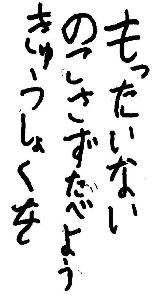 もったいない
のこさずたべよう
きゅうしょくを